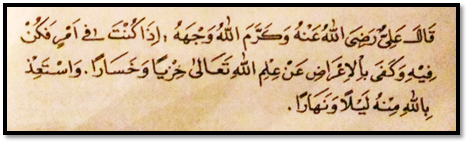 قَالَ عَلِيٌّ رَضِيَ اللهُ عَنْهُ وَكَرَّمَ اللهُ وَجْهَهُ ؛ إِذَا كُنْتَ فِي أَمْرٍ فَكُنْ
فِيْهِ وَكَفَى بِالْإِعْرَاضِ عَنْ عِلْمِ اللهِ تَعَالَى خِزْيًا وَخَسَارًا. وَاسْتَعِذْ
بِاللهِ مِنْهُ لَيْلًا وَنَهَارًا.